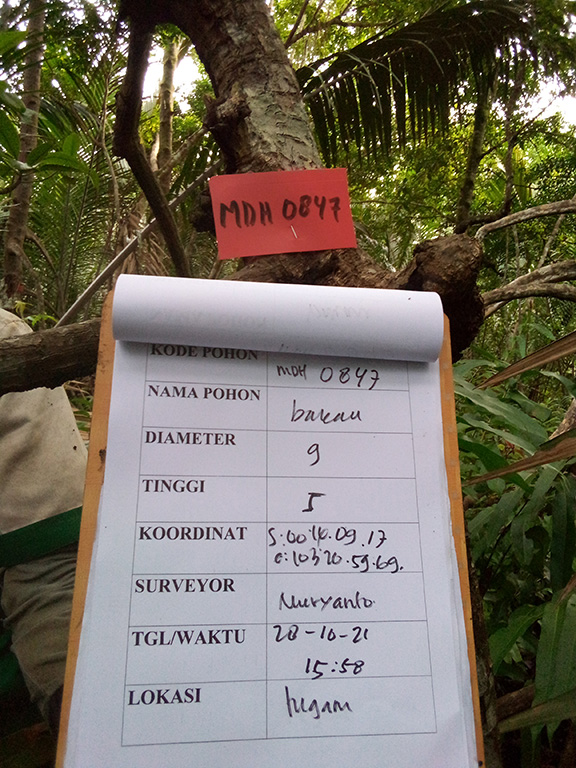 MDH 0847
KODE POHON MDH 0847
NAMA POHON bakau
DIAMETER 9
TINGGI 5
KOORDINAT S:00'16.09.17
E:103'20.59.69.
SURVEYOR Nuryanto
TGL/WAKTU 28-10-21
15:58
LOKASI